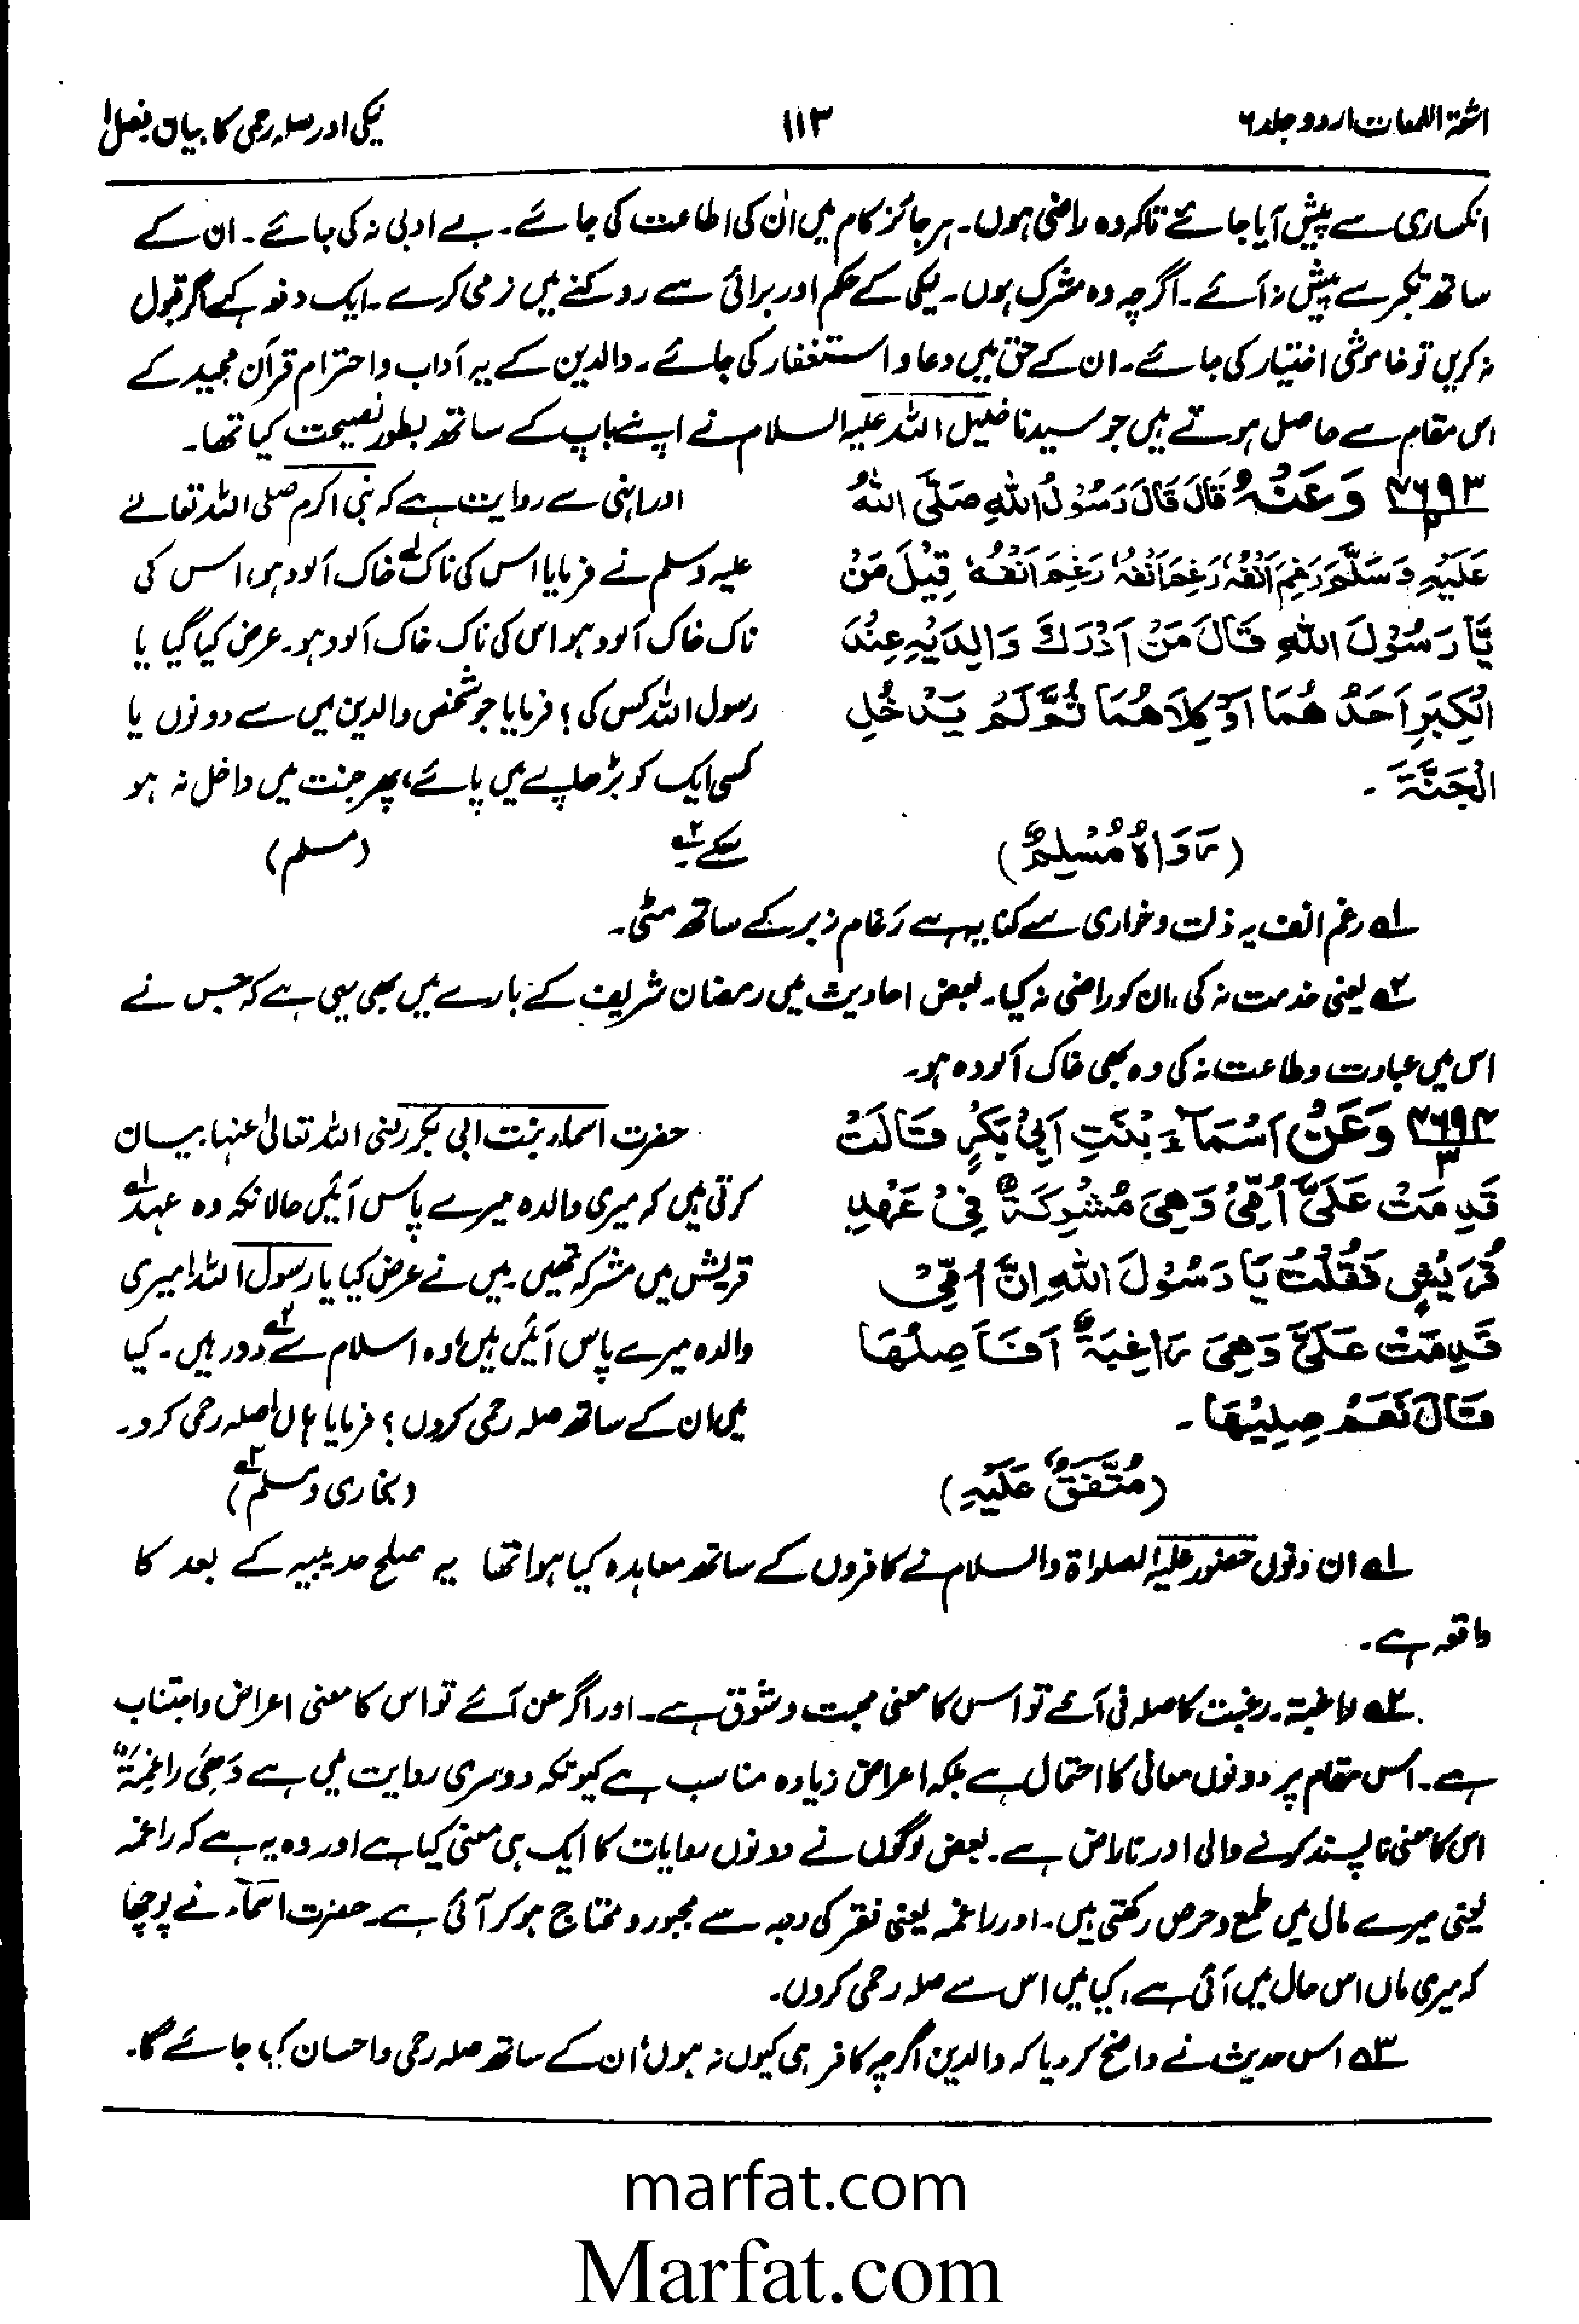 اشعۃ اللمعات اردو جلد ۶ ۱۱۳ نیکی اور صلہ رحمی کا بیان فصل ۱
انکساری سے پیش آیا جائے تاکہ وہ راضی ہوں۔ ہر جائز کام میں ان کی اطاعت کی جائے۔ بے ادبی نہ کی جائے۔ ان کے
ساتھ تکبر سے پیش نہ آئے۔ اگرچہ وہ مشرک ہوں۔ نیکی کے حکم اور برائی سے روکنے میں نرمی کرے۔ ایک دفعہ کہے اگر قبول
نہ کریں تو خاموشی اختیار کی جائے۔ ان کے حق میں دعا و استغفار کی جائے۔ والدین کے یہ آداب و احترام قرآن مجید کے
اس مقام سے حاصل ہوتے ہیں جو سیدنا خلیل اللہ علیہ السلام نے اپنے باپ کے ساتھ بطور نصیحت کیا تھا۔
۴۶۹۳/۲ وَعَنْهُ قَالَ قَالَ رَسُوْلُ اللهِ صَلَّى اللهُ
عَلَيْهِ وَسَلَّمَ رَغِمَ اَنْفُهٗ رَغِمَ اَنْفُهٗ رَغِمَ اَنْفُهٗ قِيْلَ مَنْ
يَّا رَسُوْلَ اللهِ قَالَ مَنْ اَدْرَكَ وَالِدَيْهِ عِنْدَ
الْكِبَرِ اَحَدُ هُمَا اَوْ كِلَاهُمَا ثُمَّ لَمْ يَدْخُلِ
الْجَنَّةَ ۔
(رَوَاهُ مُسْلِمٌ)
اور انہی سے روایت ہے کہ نبی اکرم صلی اللہ تعالے
علیہ وسلم نے فرمایا اس کی ناک ۱؎ خاک آلود ہو، اس کی
ناک خاک آلود ہو اس کی ناک خاک آلود ہو۔ عرض کیا گیا یا
رسول اللہ کس کی؟ فرمایا جو شخص والدین میں سے دونوں یا
کسی ایک کو بڑھاپے میں پائے، پھر جنت میں داخل نہ ہو
سکے ۲؎ (مسلم)
۱؎ رغم انف یہ ذلت و خواری سے کنایہ ہے رَغام زبر کے ساتھ مٹی۔
۲؎ یعنی خدمت نہ کی، ان کو راضی نہ کیا۔ بعض احادیث میں رمضان شریف کے بارے میں بھی یہی ہے کہ جس نے
اس میں عبادت و طاعت نہ کی وہ بھی خاک آلودہ ہو۔
۴۶۹۴/۳ وَعَنْ اَسْمَآءَ بِنْتِ اَبِيْ بَكْرٍ قَالَتْ
قَدِ مَتْ عَلَيَّ اُمِّيْ وَهِيَ مُشْرِكَةٌ فِيْ عَهْدِ
قُرَيْشٍ فَقُلْتُ يَا رَسُوْلَ اللهِ اِنَّ اُمِّيْ
قَدِمَتْ عَلَيَّ وَهِيَ رَاغِبَةٌ اَفَاَصِلُهَا
قَالَ نَعَمْ صِلِيْهَا ۔
(مُتَّفَقٌ عَلَيْهِ)
حضرت اسماء بنت ابی بکر رضی اللہ تعالیٰ عنہا بیان
کرتی ہیں کہ میری والدہ میرے پاس آئیں حالانکہ وہ عہد ۱؎
قریش میں مشرکہ تھیں۔ میں نے عرض کیا یا رسول اللہ! میری
والدہ میرے پاس آئیں ہیں، وہ اسلام سے ۲؎ دور ہیں۔ کیا
میں ان کے ساتھ صلہ رحمی کروں؟ فرمایا ہاں! صلہ رحمی کرو۔
(بخاری و مسلم) ۳؎
۱؎ ان دنوں حضور علیہ الصلواۃ والسلام نے کافروں کے ساتھ معاہدہ کیا ہوا تھا یہ صلح حدیبیہ کے بعد کا
واقعہ ہے۔
۲؎ راغبۃ۔ رغبت کا صلہ فی آئے تو اس کا معنی محبت و شوق ہے۔ اور اگر عن آئے تو اس کا معنی اعراض و اجتناب
ہے۔ اس مقام پر دونوں معانی کا احتمال ہے بلکہ اعراض زیادہ مناسب ہے کیونکہ دوسری روایت میں ہے وَهِيَ رَاغِمَةٌ
اس کا معنی ناپسند کرنے والی اور ناراض ہے۔ بعض لوگوں نے دونوں روایات کا ایک ہی معنی کیا ہے اور وہ یہ ہے کہ راغبہ
یعنی میرے مال میں طمع و حرص رکھتی ہیں۔ اور راغمہ یعنی فقر کی وجہ سے مجبور و محتاج ہو کر آئی ہے۔ حضرت اسماء نے پوچھا
کہ میری ماں اس حال میں آئی ہے، کیا میں اس سے صلہ رحمی کروں۔
۳؎ اس حدیث نے واضح کر دیا کہ والدین اگرچہ کافر ہی کیوں نہ ہوں، ان کے ساتھ صلہ رحمی و احسان کیا جائے گا۔
marfat.com
Marfat.com